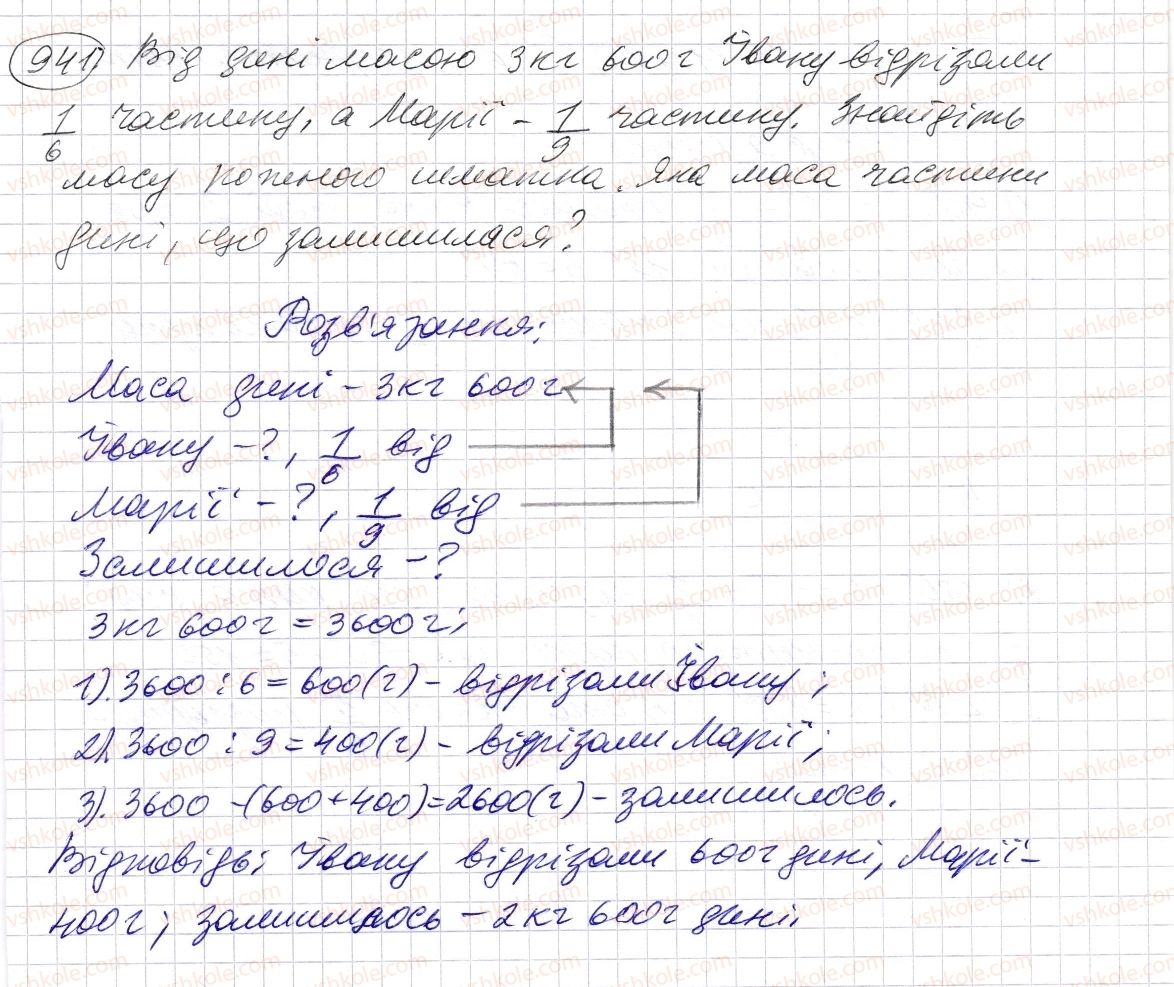 941) Від дині масою 3 кг 600 г Івану відрізали
1/6 частину, а Марії - 1/9 частину. Знайдіть
масу кожного шматка. Яка маса частини
дині, що залишилася?
Розв'язання:
Маса дині - 3 кг 600 г
Івану - ?, 1/6 від
Марії - ?, 1/9 від
Залишилося - ?
3 кг 600 г = 3600 г;
1). 3600 : 6 = 600 (г) - відрізали Івану;
2). 3600 : 9 = 400 (г) - відрізали Марії;
3). 3600 - (600 + 400) = 2600 (г) - залишилось.
Відповідь: Івану відрізали 600 г дині, Марії -
400 г; залишилось - 2 кг 600 г дині.
vshkole.com